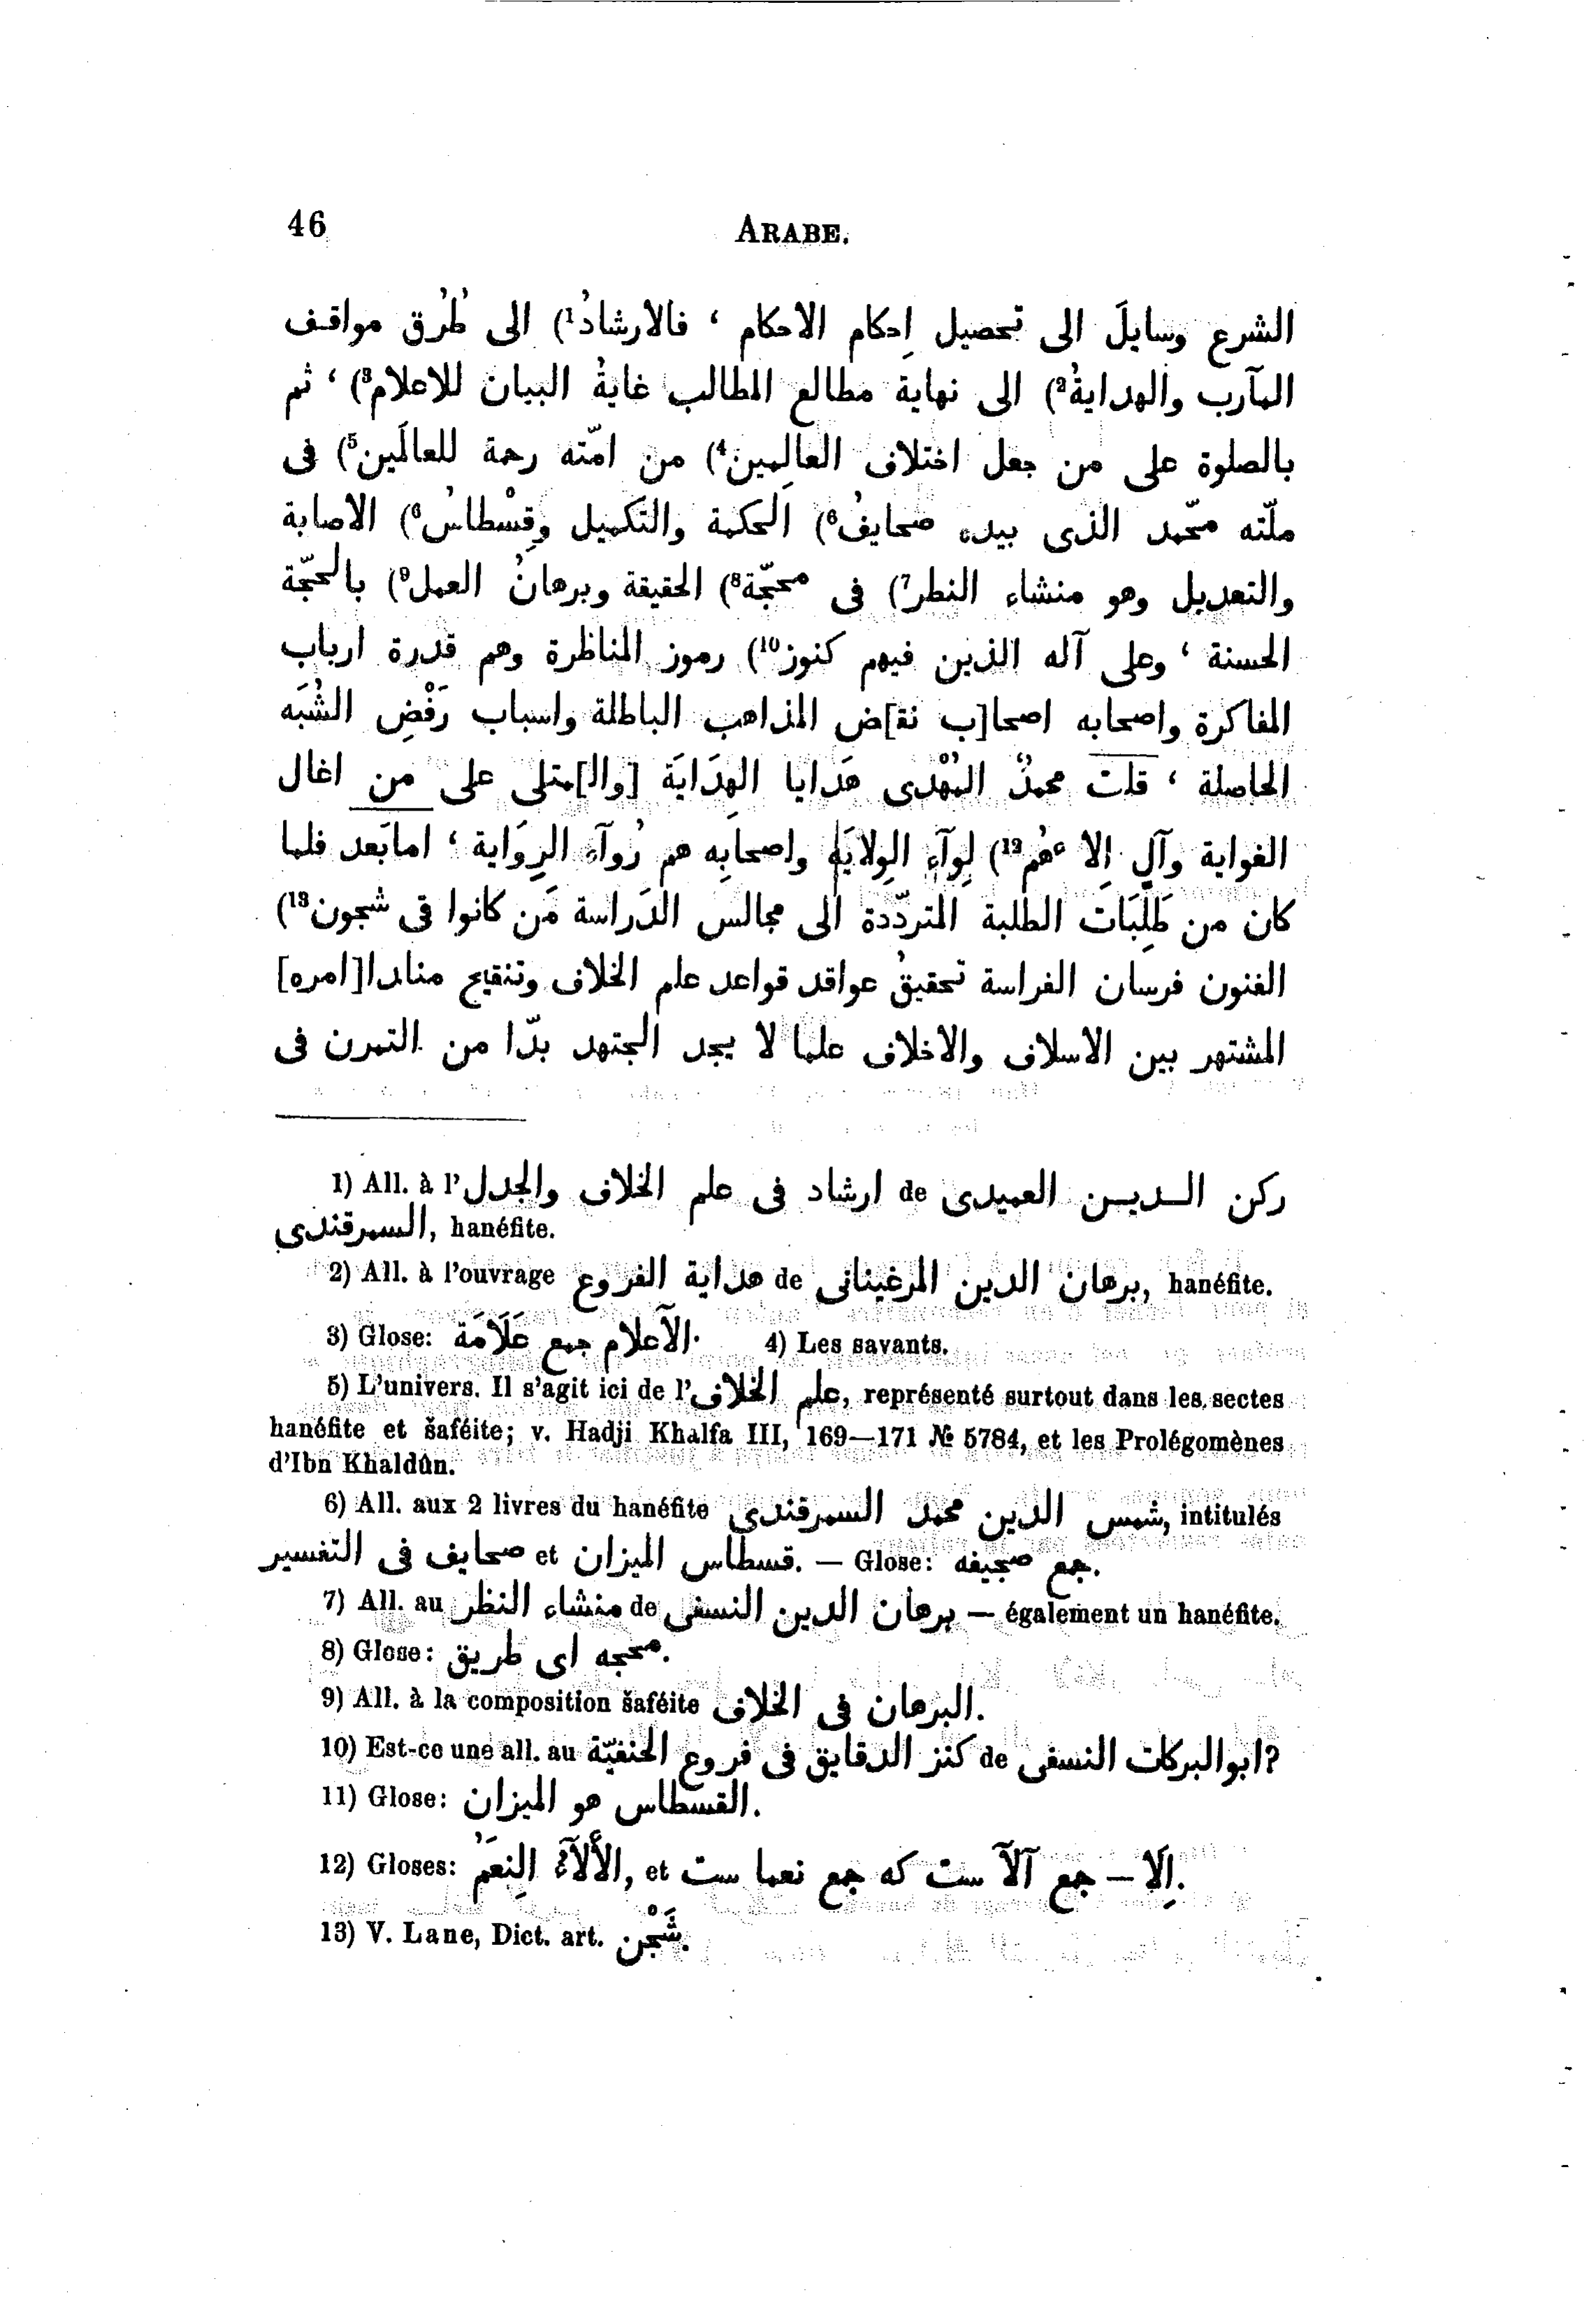 46
ARABE.
الشرع وسايلَ الى تحصيل اِحكام الاحكام ، فالارشادُ¹) الى طُرُق مواقف
المآرب والهدايةُ²) الى نهاية مطالع المطالب غايةُ البيان للاعلام³) ، ثم
بالصلوة على من جعل اختلاف العالِمين⁴) من امّته رحمة للعالَمين⁵) فى
ملّته محّمد الذى بيده صحايفُ⁶) الحكمة والتكميل وقِسْطاسُ⁶) الاصابة
والتعديل وهو منشاء النظر⁷) فى محجّة⁸) الحقيقة وبرهانُ العمل⁹) بالحجّة
الحسنة ، وعلى آله الذين فيهم كنوز¹⁰) رموز المناظرة وهم قدرة ارباب
المفاكرة واصحابه اصحا[ب نق]ض المذاهب الباطلة واسباب رَفْضِ الشُبَه
الحاصلة ، قلت محمدٌ المُهْدى هَدايا الهِدَايَة [وال]متلى على من اغال
الغواية وآلٍ اِلاءهُم¹²) لِوآءِ الوِلايَه واصحابِه هم رُوآء الرِوَاية ، امابَعد فلما
كان من طَلِبَات الطلبة المتردّدة الى مجالس الدَراسة مَن كانوا فى شجون¹³)
الفنون فرسان الفراسة تحقيقُ عواقد قواعد علم الخلاف وتنقيح مناىدا[امره]
المشتهر بين الاسلاف والاخلاف علما لا يجد المجتهد بدّا من التمرن فى
1) All. à l'ارشاد فى علم الخلاف والجدل de ركن الدين العميدى
السمرقندى, hanéfite.
2) All. à l'ouvrage هداية الفروع de برهان الدين المرغينانى, hanéfite.
3) Glose: الآعلام جمع عَلَامَة. 4) Les savants.
5) L'univers. Il s'agit ici de l'علم الخلاف, représenté surtout dans les sectes
hanéfite et šaféite; v. Hadji Khalfa III, 169—171 № 5784, et les Prolégomènes
d'Ibn Khaldûn.
6) All. aux 2 livres du hanéfite شمس الدين محمد السمرقندى, intitulés
صحايف فى التفسير et قسطاس الميزان. — Glose: جمع صحيفه.
7) All. au منشاء النظر de برهان الدين النسفى — également un hanéfite.
8) Glose: محجه اى طريق.
9) All. à la composition šaféite البرهان فى الخلاف.
10) Est-ce une all. au كنز الدقايق فى فروع الحنفيّة de ابوالبركات النسفى?
11) Glose: القسطاس هو الميزان.
12) Gloses: الْأَلآءُ النِعَمُ, et اِلَا – جمع آلآ ست که جمع نعما ست.
13) V. Lane, Dict. art. شَجْن.